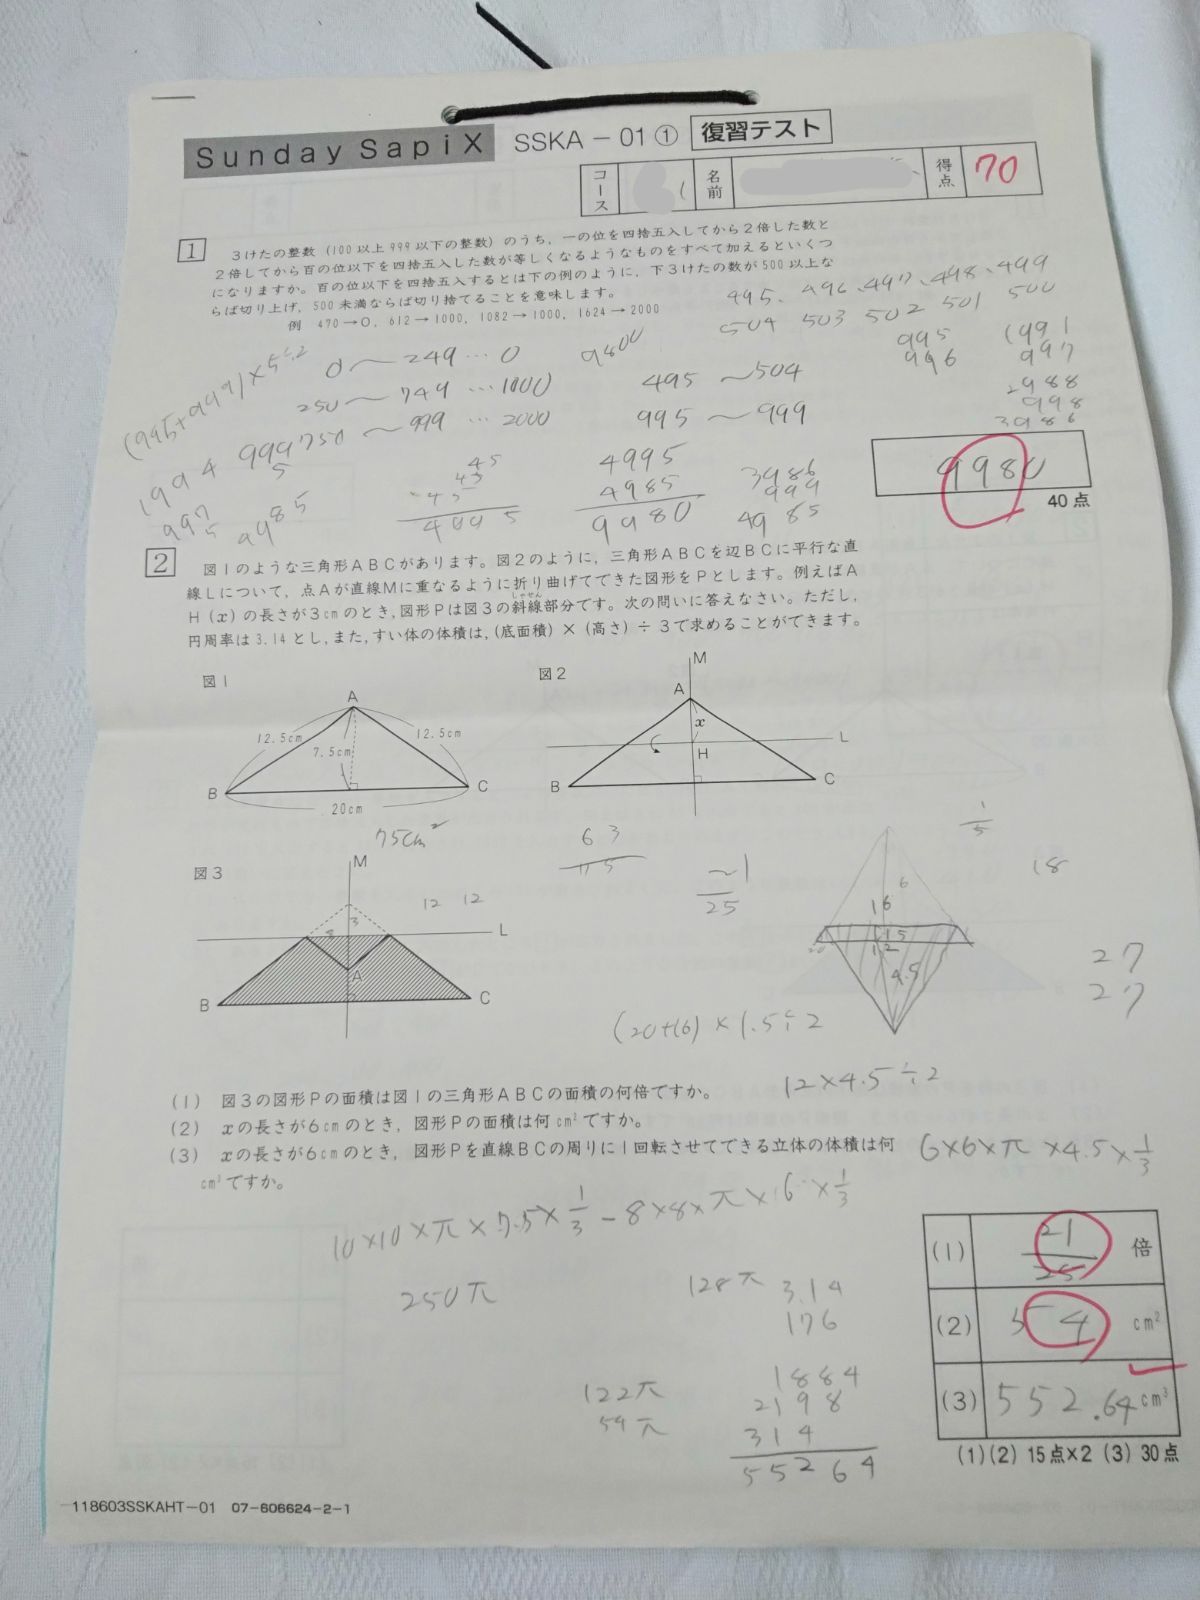 Sunday SapiX SSKA－01① 復習テスト
コース 名前 得点 70
1 3けたの整数(100以上999以下の整数)のうち，一の位を四捨五入してから2倍した数と
2倍してから百の位以下を四捨五入した数が等しくなるようなものをすべて加えるといくつ
になりますか。百の位以下を四捨五入するとは下の例のように，下3けたの数が500以上な
らば切り上げ，500未満ならば切り捨てることを意味します。
例 470→0，612→1000，1082→1000，1624→2000
495、496、497、498、499
504 503 502 501 500
0～249…0
9800
995
996
997
250～749…1000
495～504
1991
2988
998
3986
750～999…2000
995～999
(995+999)×5÷2
1994
999
5
997
5
4995
4985
9980
3986
999
4985
9980
40点
2 図1のような三角形ABCがあります。図2のように，三角形ABCを辺BCに平行な直
線Lについて，点Aが直線Mに重なるように折り曲げてできた図形をPとします。例えばA
H(x)の長さが3cmのとき，図形Pは図3の斜線部分です。次の問いに答えなさい。ただし，
しゃせん
円周率は3.14とし，また，すい体の体積は，(底面積)×(高さ)÷3で求めることができます。
図1
A
12.5cm 12.5cm
7.5cm
B C
20cm
75cm²
図2
M
A
x
L
H
B C
63
75
図3
M
3
L
A
B C
12 12
21
25
1
5
18
6
16
1.5
12
4.5
27
27
(20+16)×1.5÷2
12×4.5÷2
(1) 図3の図形Pの面積は図1の三角形ABCの面積の何倍ですか。
(2) xの長さが6cmのとき，図形Pの面積は何cm²ですか。
(3) xの長さが6cmのとき，図形Pを直線BCの周りに1回転させてできる立体の体積は何
cm³ですか。
6×6×π×4.5×1/3
10×10×π×7.5×1/3－8×8×π×6×1/3
250π
128π
3.14
176
122π
54π
1884
2198
314
55264
(1) 21/25 倍
(2) 54 cm²
(3) 552.64 cm³
(1)(2) 15点×2 (3) 30点
118603SSKAHT－01 07－606624－2－1